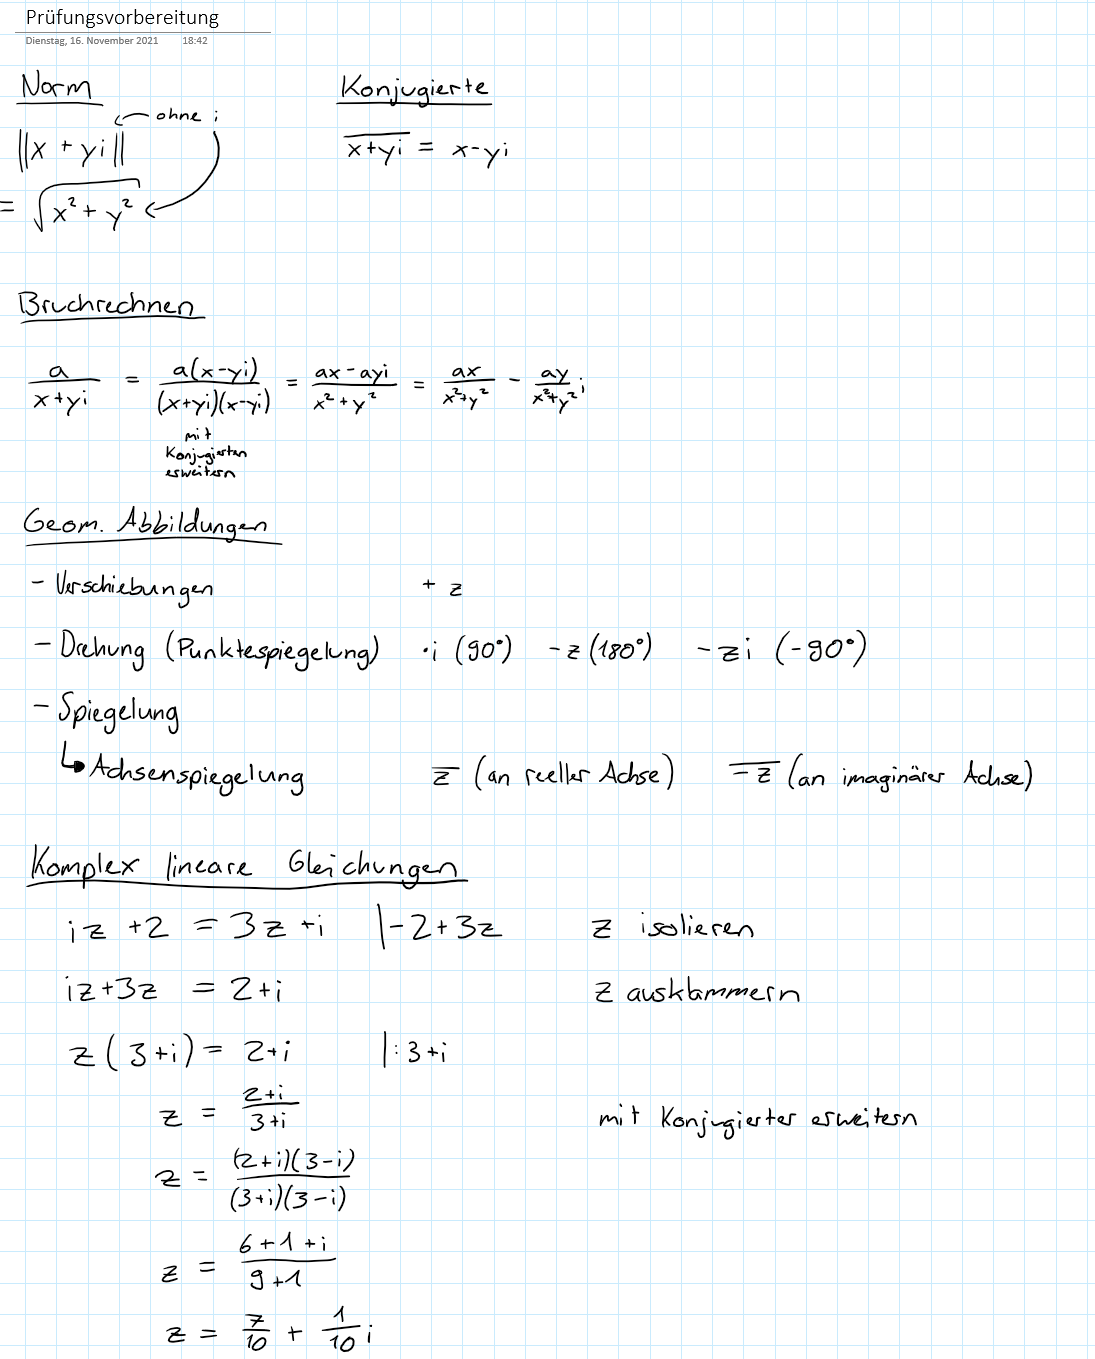 Prüfungsvorbereitung
Dienstag, 16. November 2021 18:42
Norm
Konjugierte
ohne i
||x + yi||
x+yi̅ = x-yi
= √(x² + y²)
Bruchrechnen
a/(x+yi) = a(x-yi)/((x+yi)(x-yi)) = (ax-ayi)/(x²+y²) = ax/(x²+y²) - ay/(x²+y²) i
mit
Konjugierten
erweitern
Geom. Abbildungen
- Verschiebungen + z
- Drehung (Punktespiegelung) ·i (90°) -z (180°) -zi (-90°)
- Spiegelung
↳ Achsenspiegelung z̅ (an reeller Achse) -z̅ (an imaginärer Achse)
Komplex lineare Gleichungen
iz +2 = 3z +i |-2+3z z isolieren
iz+3z = 2+i z ausklammern
z(3+i) = 2+i |:3+i
z = (2+i)/(3+i) mit Konjugierter erweitern
z = (2+i)(3-i)/((3+i)(3-i))
z = (6+1+i)/(9+1)
z = 7/10 + 1/10 i